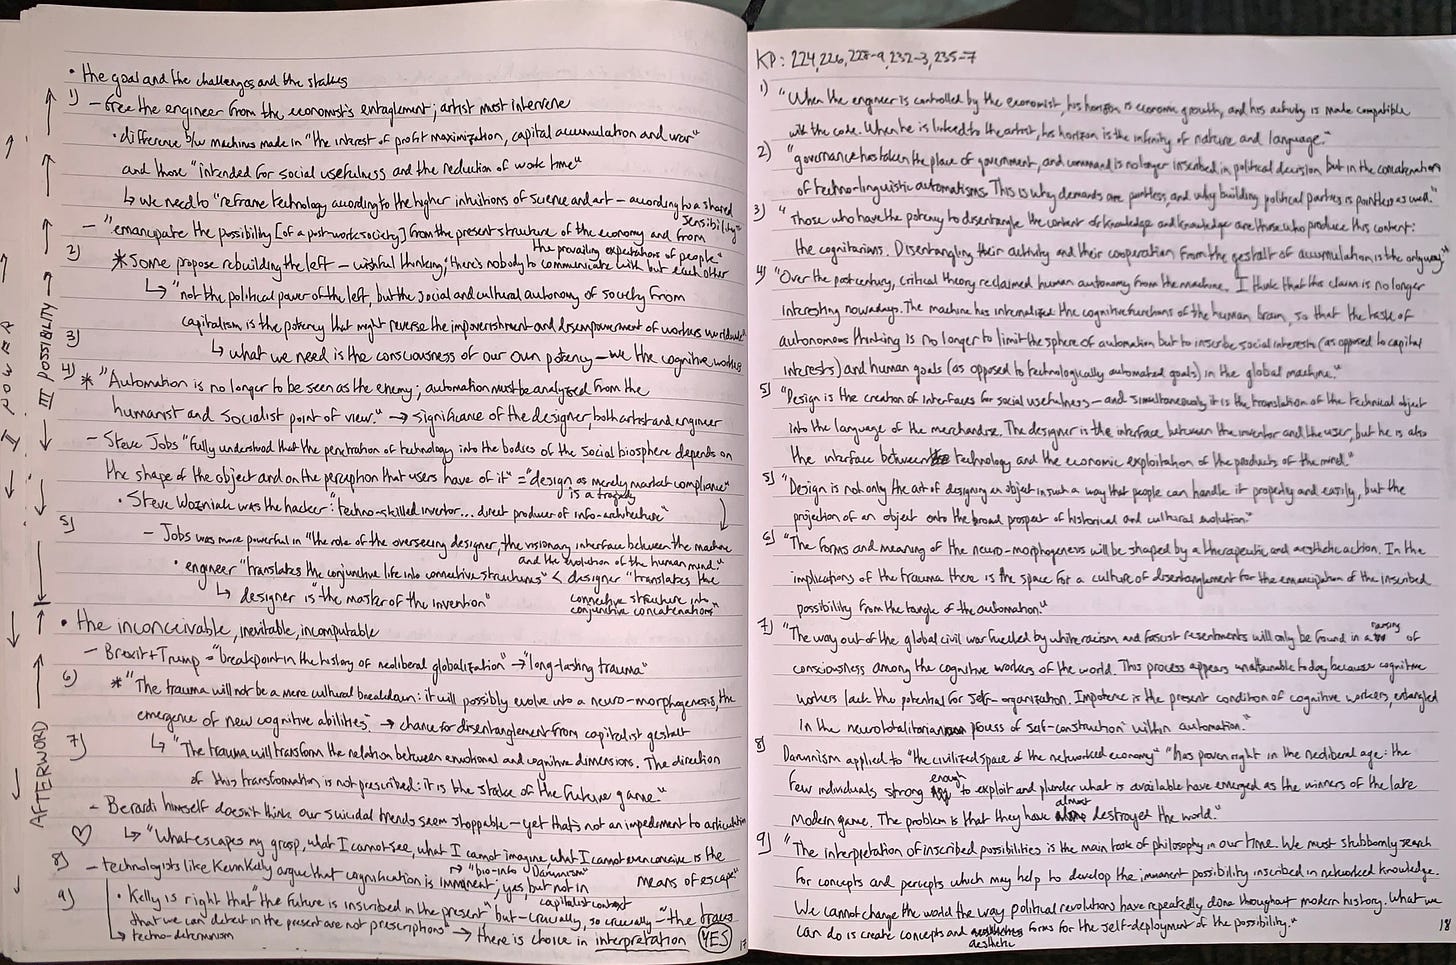 • the goal and the challenges and the stakes
1) – free the engineer from the economist's entaglement; artist must intervene
• difference b/w machines made in "the interest of profit maximization, capital accumulation and war"
and those "intended for social usefulness and the reduction of work time"
↳ we need to "reframe technology according to the higher intuitions of science and art – according to a shared
sensibility"
– "emancipate the possibility [of a post-work society] from the present structure of the economy and from
the prevailing expectations of people"
2) * Some propose rebuilding the left – wishful thinking, "there's nobody to communicate with but each other
↳ "not the political power of the left, but the social and cultural autonomy of society from
capitalism is the potency that might reverse the impoverishment and disempowerment of workers worldwide"
3) ↳ what we need is the consciousness of our own potency – we the cognitive workers
4) * "Automation is no longer to be seen as the enemy; automation must be analyzed from the
humanist and socialist point of view." → significance of the designer, both artist and engineer
– Steve Jobs "fully understood that the penetration of technology into the bodies of the social biosphere depends on
the shape of the object and on the perception that users have of it" = "design as merely market compliance"
is a tragedy
• Steve Wozniak was the hacker: "techno-skilled inventor... direct producer of info-architecture"
5) – Jobs was more powerful in "the role of the overseeing designer, the visionary interface between the machine
and the evolution of the human mind."
• engineer "translates the conjunctive life into connective structures" < designer "translates the
connective structure into
conjunctive concatenations"
↳ designer "is the master of the invention"
• the inconceivable, inevitable, incomputable
– Brexit + Trump = "breakpoint in the history of neoliberal globalization" → "long-lasting trauma"
6) * "The trauma will not be a mere cultural breakdown: it will possibly evolve into a neuro-morphogenesis, the
emergence of new cognitive abilities." → chance for disentanglement from capitalist gestalt
7) ↳ "The trauma will transform the relation between emotional and cognitive dimensions. The direction
of this transformation is not prescribed: it is the stake of the future game."
– Berardi himself doesn't think our suicidal trends seem stoppable – yet that's not an impediment to articulation
♡ ↳ "What escapes my grasp, what I cannot see, what I cannot imagine what I cannot even conceive is the
means of escape"
→ "bio-info Darwinism"
8) – technologists like Kevin Kelly argue that cognification is immanent; yes, but not in
capitalist context
9) • Kelly is right that "the future is inscribed in the present" but – crucially, so crucially – "the traces
that we can detect in the present are not prescriptions" → there is choice in interpretation YES
↳ techno-determinism
17
II POWER
III POSSIBILITY
AFTERWORD
KP: 224, 226, 228-9, 232-3, 235-7
1) "When the engineer is controlled by the economist, his horizon is economic growth, and his activity is made compatible
with the code. When he is linked to the artist, his horizon is the infinity of nature and language."
2) "governance has taken the place of government, and command is no longer inscribed in political decision but in the concatenation
of techno-linguistic automatisms. This is why demands are pointless, and why building political parties is pointless as well."
3) "Those who have the potency to disentangle the content of knowledge and knowledge are those who produce this content:
the cognitarians. Disentangling their activity and their cooperation from the gestalt of accumulation is the only way"
4) "Over the past century, critical theory reclaimed human autonomy from the machine. I think that this claim is no longer
interesting nowadays. The machine has internalized the cognitive functions of the human brain, so that the task of
autonomous thinking is no longer to limit the sphere of automation but to inscribe social interests (as opposed to capital
interests) and human goals (as opposed to technologically automated goals) in the global machine."
5) "Design is the creation of interfaces for social usefulness – and simultaneously it is the translation of the technical object
into the language of the merchandize. The designer is the interface between the inventor and the user, but he is also
the interface between technology and the economic exploitation of the products of the mind."
5) "Design is not only the art of designing an object in such a way that people can handle it properly and easily, but the
projection of an object onto the broad prospect of historical and cultural evolution."
6) "The forms and meaning of the neuro-morphogenesis will be shaped by a therapeutic and aesthetic action. In the
implications of the trauma there is the space for a culture of disentanglement for the emancipation of the inscribed
possibility from the tangle of the automation."
7) "The way out of the global civil war fuelled by white racism and fascist resentments will only be found in a raising of
consciousness among the cognitive workers of the world. This process appears unattainable today because cognitive
workers lack the potential for self-organization. Impotence is the present condition of cognitive workers, entangled
in the neurototalitarian process of self-construction within automation."
8) Darwinism applied to "the civilized space of the networked economy" "has proven right in the neoliberal age: the
few individuals strong enough to exploit and plunder what is available have emerged as the winners of the late
modern game. The problem is that they have almost destroyed the world."
9) "The interpretation of inscribed possibilities is the main task of philosophy in our time. We must stubbornly search
for concepts and percepts which may help to develop the immanent possibility inscribed in networked knowledge.
We cannot change the world the way political revolutions have repeatedly done throughout modern history. What we
can do is create concepts and aesthetic forms for the self-deployment of the possibility."
18